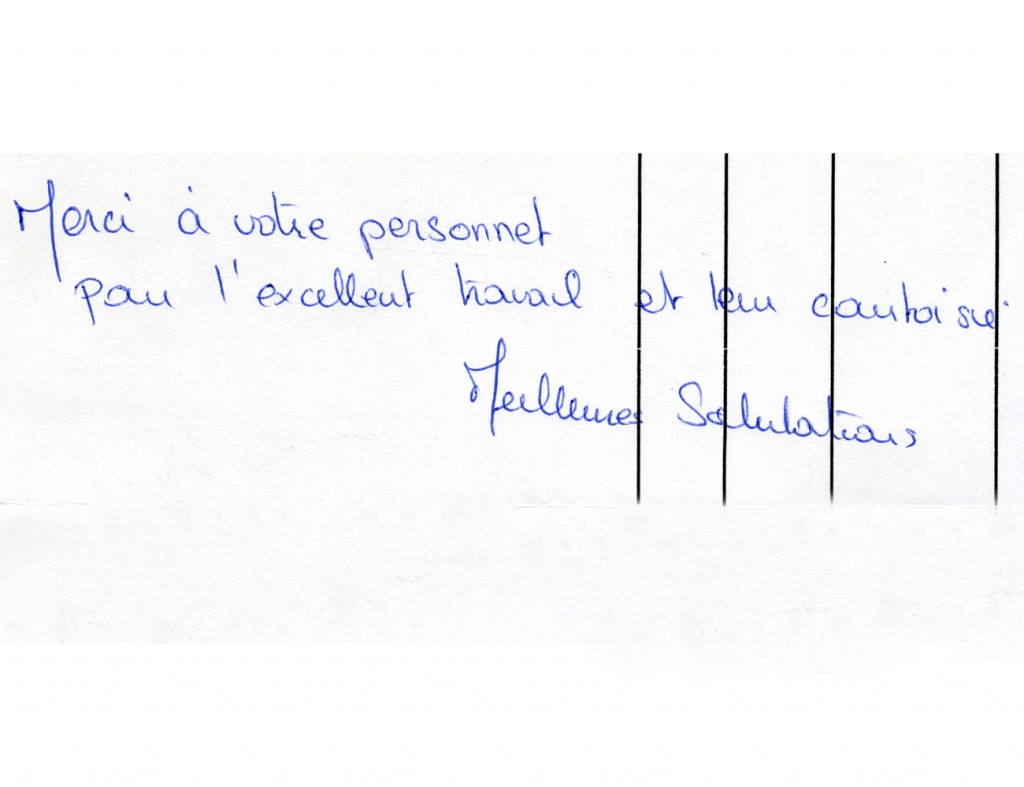 Merci à votre personnel
pour l'excellent travail et leur courtoisie.
Meilleures Salutations